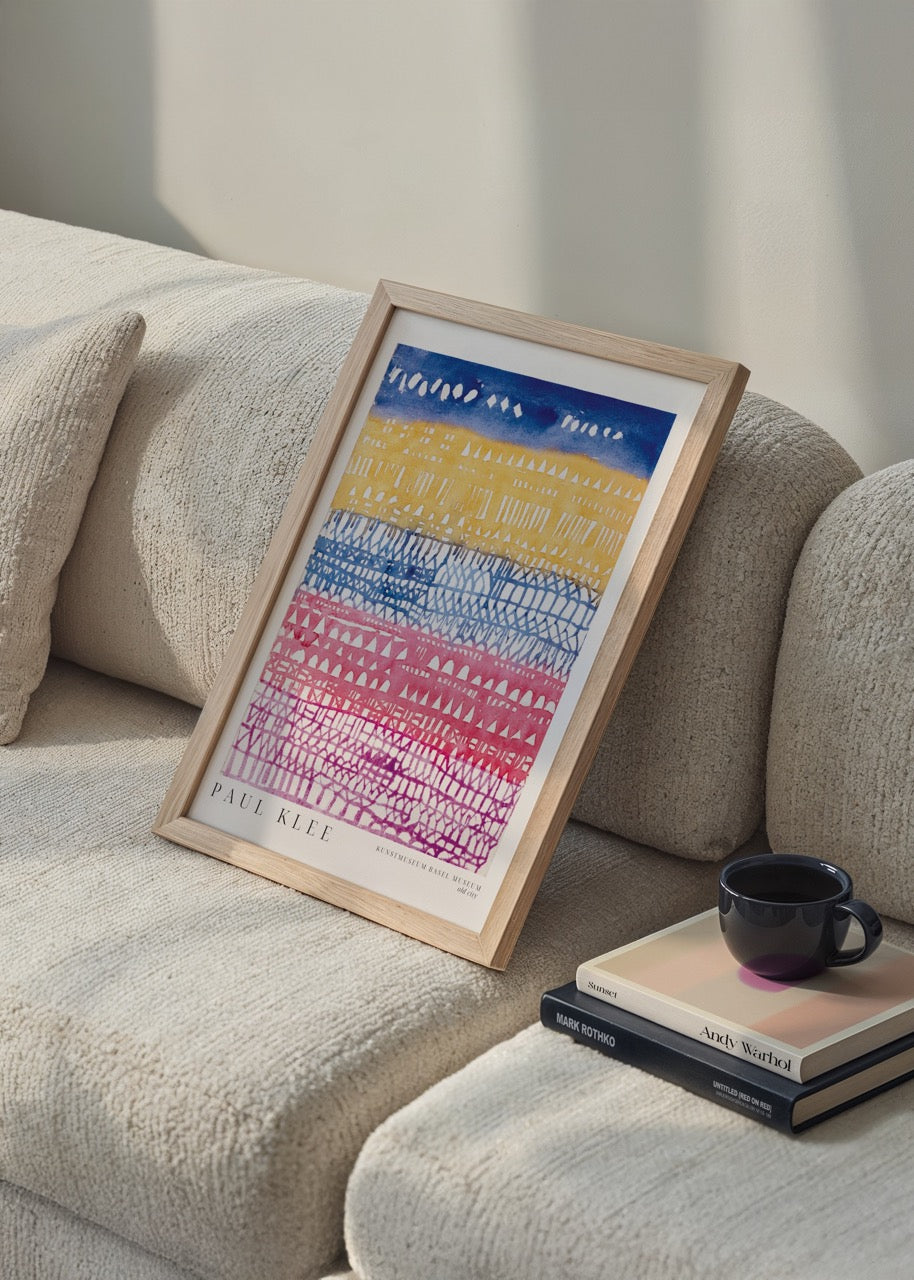 PAUL KLEE
KUNSTMUSEUM BASEL MUSEUM
old city
Sunset
Andy Warhol
MARK ROTHKO
UNTITLED [RED ON RED]